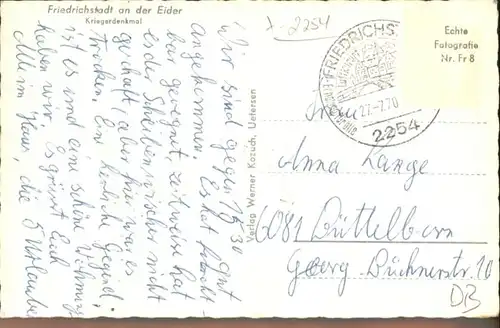 Friedrichstadt an der Eider
Kriegerdenkmal
2254
Echte
Fotografie
Nr. Fr 8
FRIEDRICHS
27.-7.70
2254
Wir sind gegen 17 30 gut
angekommen. Es hat
bar geweint zeitweise hat
es der Scheibenwischer nicht
geschafft, aber prima
trocken. Eine herrliche Gegend.
ist es und eine schöne
haben wir. Es grüsst Euch
Alle im Haus, die 5 Urlauber
Verlag Werner Kozuch, Uetersen
Frau
Anna Lange
6081 Büttelborn
Georg-Büchnerstr 10
DB